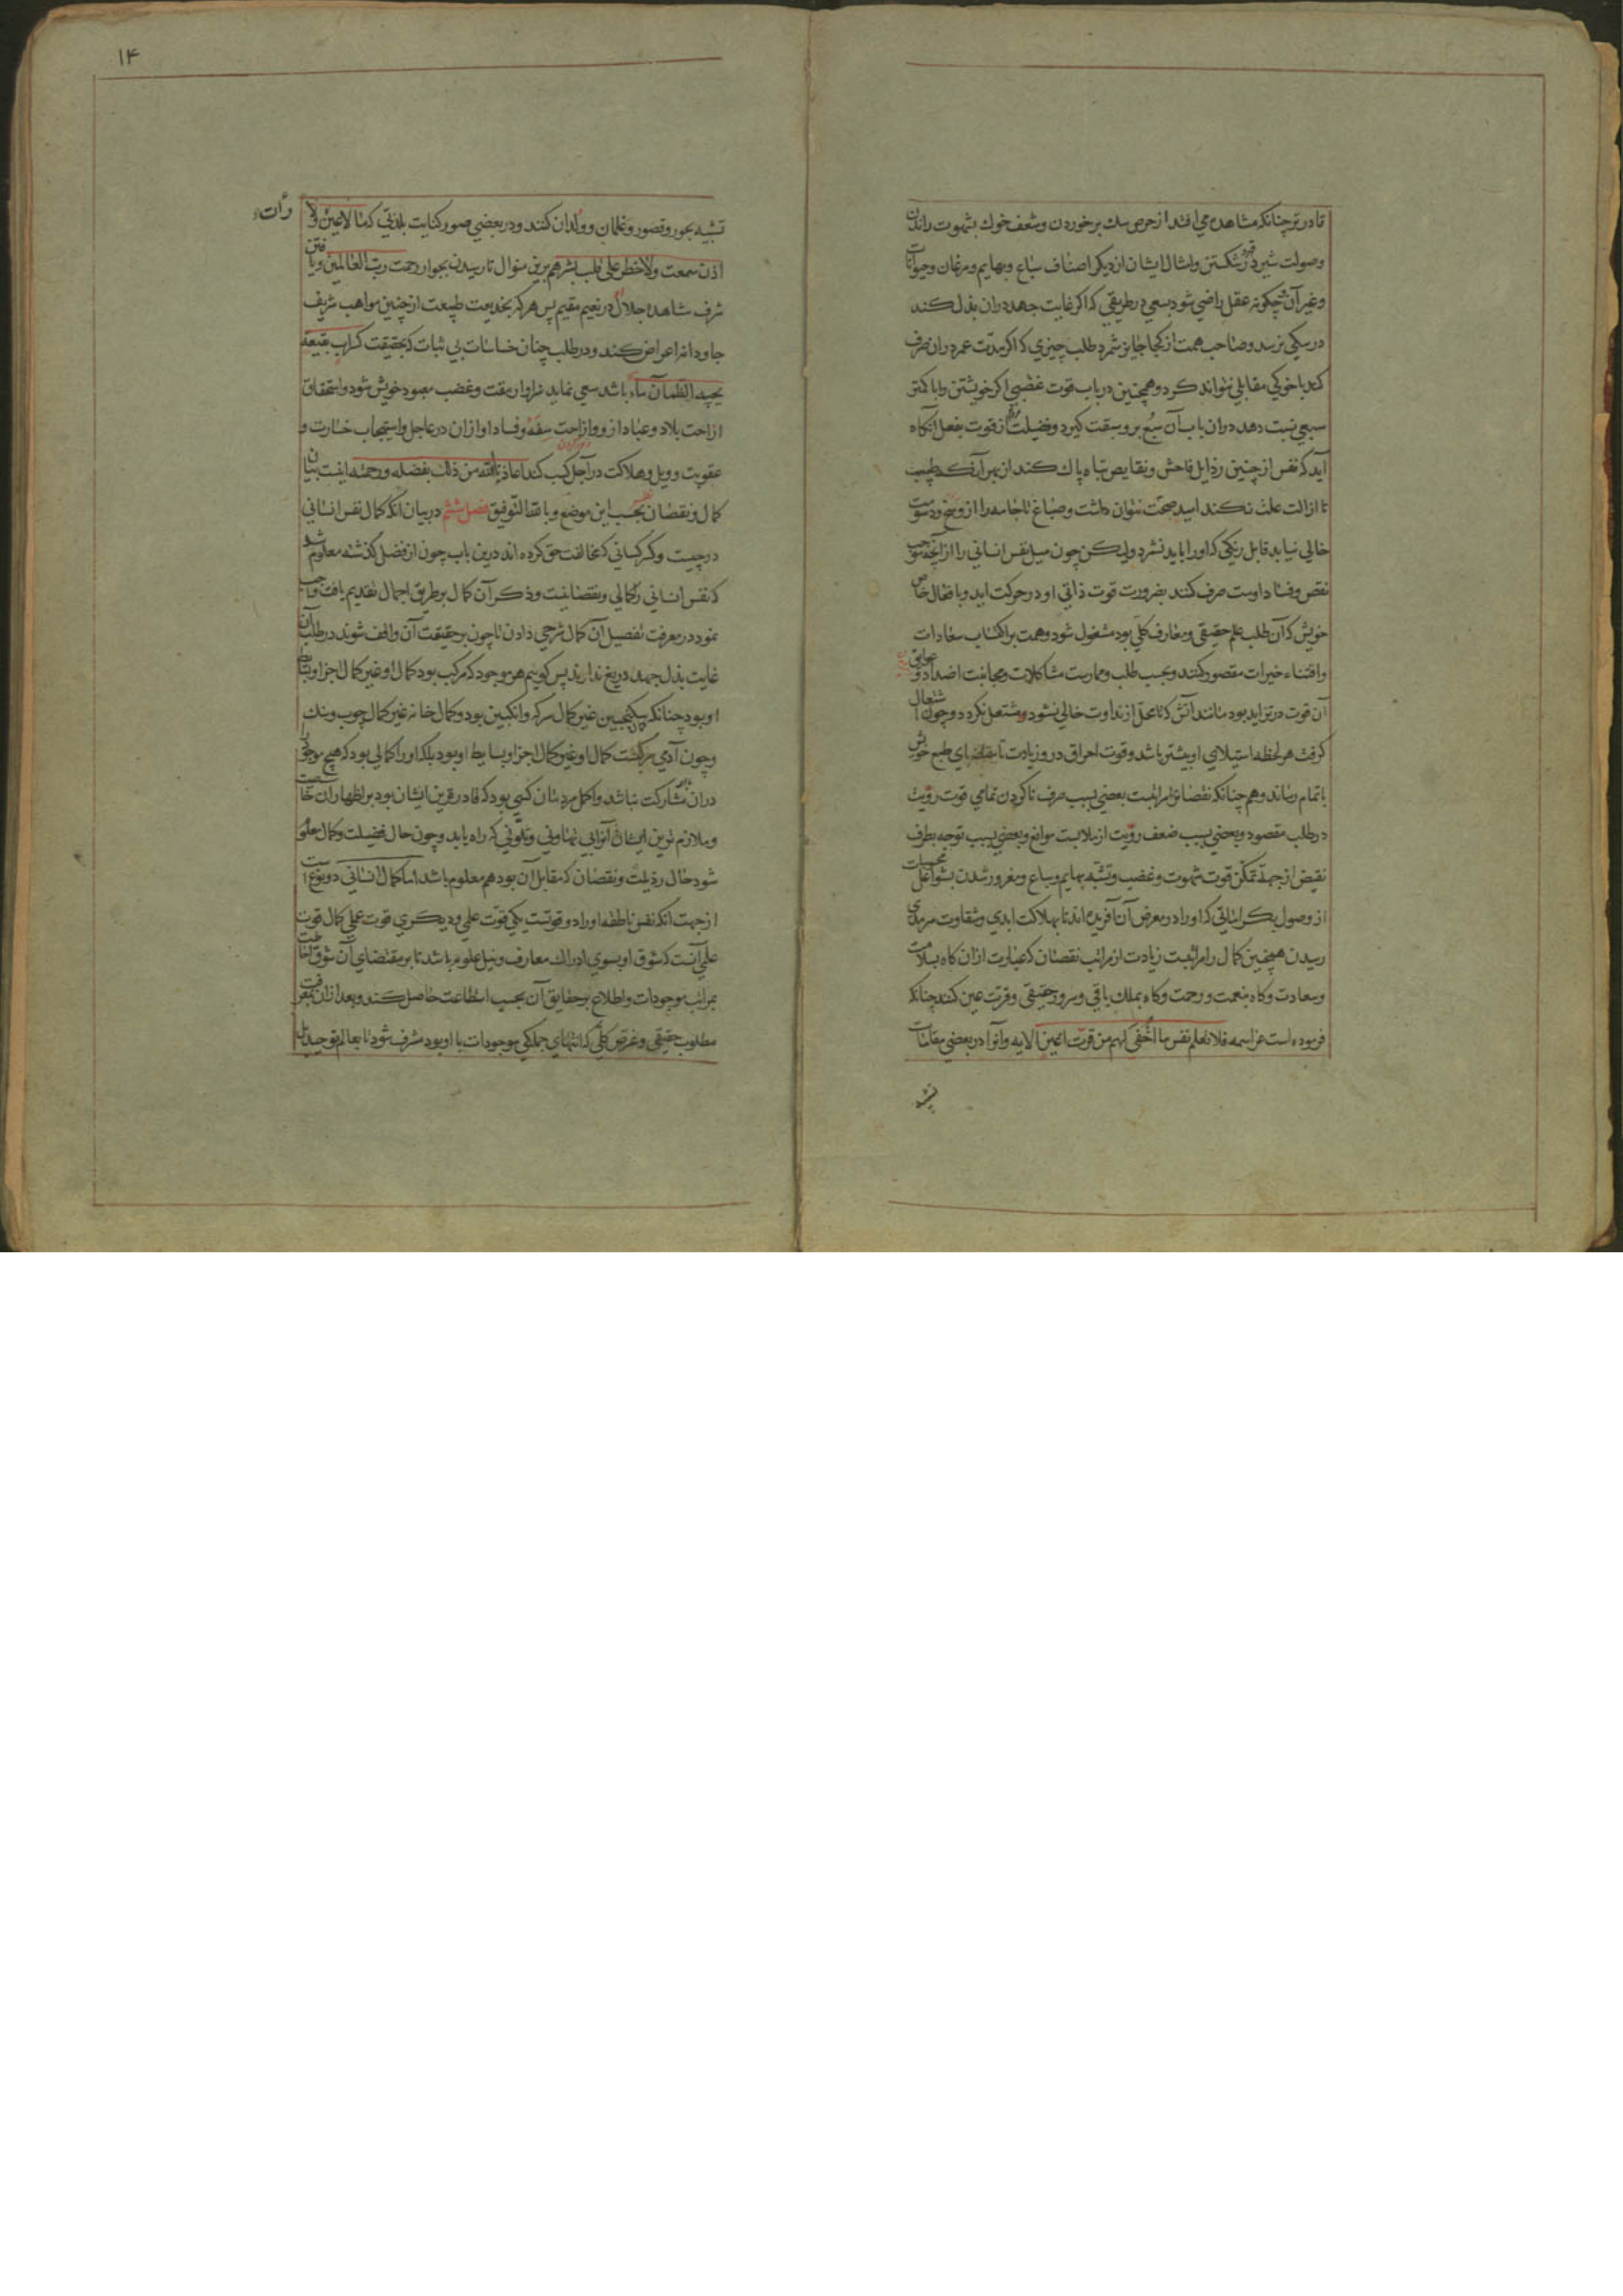 قادرتر چنانکه مشاهده می افتد از حرص سک بر خوردن و شعف خوک بشهوت راندن
وصولت شیر در قهر و شکستن و امثال ایشان از دیکر اصناف سباع و بهایم و مرغان و حیوانات
و غیر آن چکونه عقل راضی شود بسعی در طریقی که اکر غایت جهد دران بذل کند
در سکی نرسد و صاحب همت از کجا جایز شمرد طلب چیزی که اکر مدت عمر دران صرف
کند با خوکی مقابلی نتواند کرد و همچنین در باب قوت غضبی اکر خویشتن را با کمتر
سبعی نسبت دهد دران باب آن سبع برو سبقت کیرد و فضیلت او از قوت بفعل آنکاه
آید که نفس از چنین رذایل فاحش و نقایص تباه پاک کند از بهر آنک طبیب
تا ازالت علت نکند امید صحت نتوان داشت و صباغ تا جامه را از وسخ و دسومت
خالی نیابد قابل رنکی که او را باید نشمرد ولیکن چون میل نفس انسانی را از آنچه موجب
نقص و فساد اوست صرف کنند بضرورت قوت ذاتی او در حرکت اید و بافعال خاص
خویش که آن طلب علم حقیقی و معارف کلی بود مشغول شود و همت بر اکتساب سعادات
و اقتناء خیرات مقصور کند و بحسب طلب و ممارست مشاکلات و مجانبت اضداد و عوایق
آن قوت در تزاید بود مانند آتش که تا محل از نداوت خالی نشود مشتعل نکردد و چون اشتعال
کرفت هر لحظه استیلای او بیشتر باشد و قوت احراق درو زیادت تا مقتضای طبع خویش
باتمام رساند و هم چنانکه نقصانرا مراتبست بعضی بسبب صرف ناکردن تمامی قوت رؤیت
در طلب مقصود و بعضی بسبب ضعف رؤیت از ملابست موانع و بعضی بسبب توجه بطرف
نقیض از جهة تمکن قوت شهوت و غضب و تشبه ببهایم و سباع و مغرور شدن بشواغل محسوسات
از وصول بکراماتی که او را در معرض آن آفریده اند تا بهلاکت ابدی و شقاوت سرمدی
رسیدن همچنین کمال را مراتبست زیادت از مراتب نقصان که عبارت ازان کاه بسلامت
و سعادت و کاه بنعمت و رحمت و کاه بملک باقی و سرور حقیقی و قرت عین کنند چنانکه
فرموده است عز اسمه فلا تعلم نفس ما اخفی لهم من قرت اعین الایه و آنرا در بعضی مقامات
تشبیه
۱۴
تشبیه بحور و قصور و غلمان و ولدان کنند و در بعضی صور کنایت بلذتی کما لا عین رأت ولا
اذن سمعت ولا خطر علی قلب بشر هم برین منوال تا رسیدن بجوار رحمت رب العالمین و یافتن
شرف مشاهده جلال او در نعیم مقیم پس هر که بخدیعت طبیعت از چنین مواهب شریف
جاودانه اعراض کند و در طلب چنان خساسات بی ثبات که بحقیقت کسراب بقیعة
یحسبه الظمآن ماء باشد سعی نماید سزاوار مقت و غضب معبود خویش شود و استحقاق
ازاحت بلاد و عباد ازو و ازاحت سفه و فساد او ازان در عاجل و استیجاب خسارت و
عقوبت و ویل و هلاکت در آجل کسب کند اعاذنا الله من ذلک بفضله و رحمته اینست بیان
کمال و نقصان نفس بحسب این موضع و بالله التوفیق فصل ششم در بیان انکه کمال نفس انسانی
در چیست و کسر کسانی که مخالفت حق کرده اند درین باب چون از فصل کذشته معلوم شد
که نفس انسانی را کمالی و نقصانیست و ذکر آن کمال بر طریق اجمال تقدیم یافت واجب
نمود در معرفت تفصیل آن کمال شرحی دادن تا چون بر حقیقت آن واقف شوند در طلب آن
غایت بذل جهد دریغ ندارند پس کوییم هر موجود که مرکب بود کمال او غیر کمال اجزا و بسایط
او بود چنانکه سکنجبین غیر کمال سرکه و انکبین بود و کمال خانه غیر کمال چوب و سنک
و چون آدمی مرکبست کمال او غیر کمال اجزا و بسایط او بود بلکه او را کمالی بود که هیچ موجود
دران مشارکت نباشد و اکمل مردمان کسی بود که قادرترین ایشان بود بر اظهار ان خاصیت
و ملازم ترین ایشان آنرا بی تهاونی و تلونی که راه یابد و چون حال فضیلت و کمال معلوم
شود حال رذیلت و نقصان که مقابل آن بود هم معلوم باشد اما کمال انسانی دو نوع است
از جهت انکه نفس ناطقه او را دو قوتست یکی قوت علمی و دیکری قوت عملی کمال قوت
علمی آنست که شوق او بسوی ادراک معارف و نیل علوم باشد تا بر مقتضای آن شوق احاطت
بمراتب موجودات و اطلاع بر حقایق آن بحسب استطاعت حاصل کند و بعد ازان بمعرفت
مطلوب حقیقی و غرض کلی که انتهای جملکی موجودات با او بود مشرف شود تا بعالم توحید بل